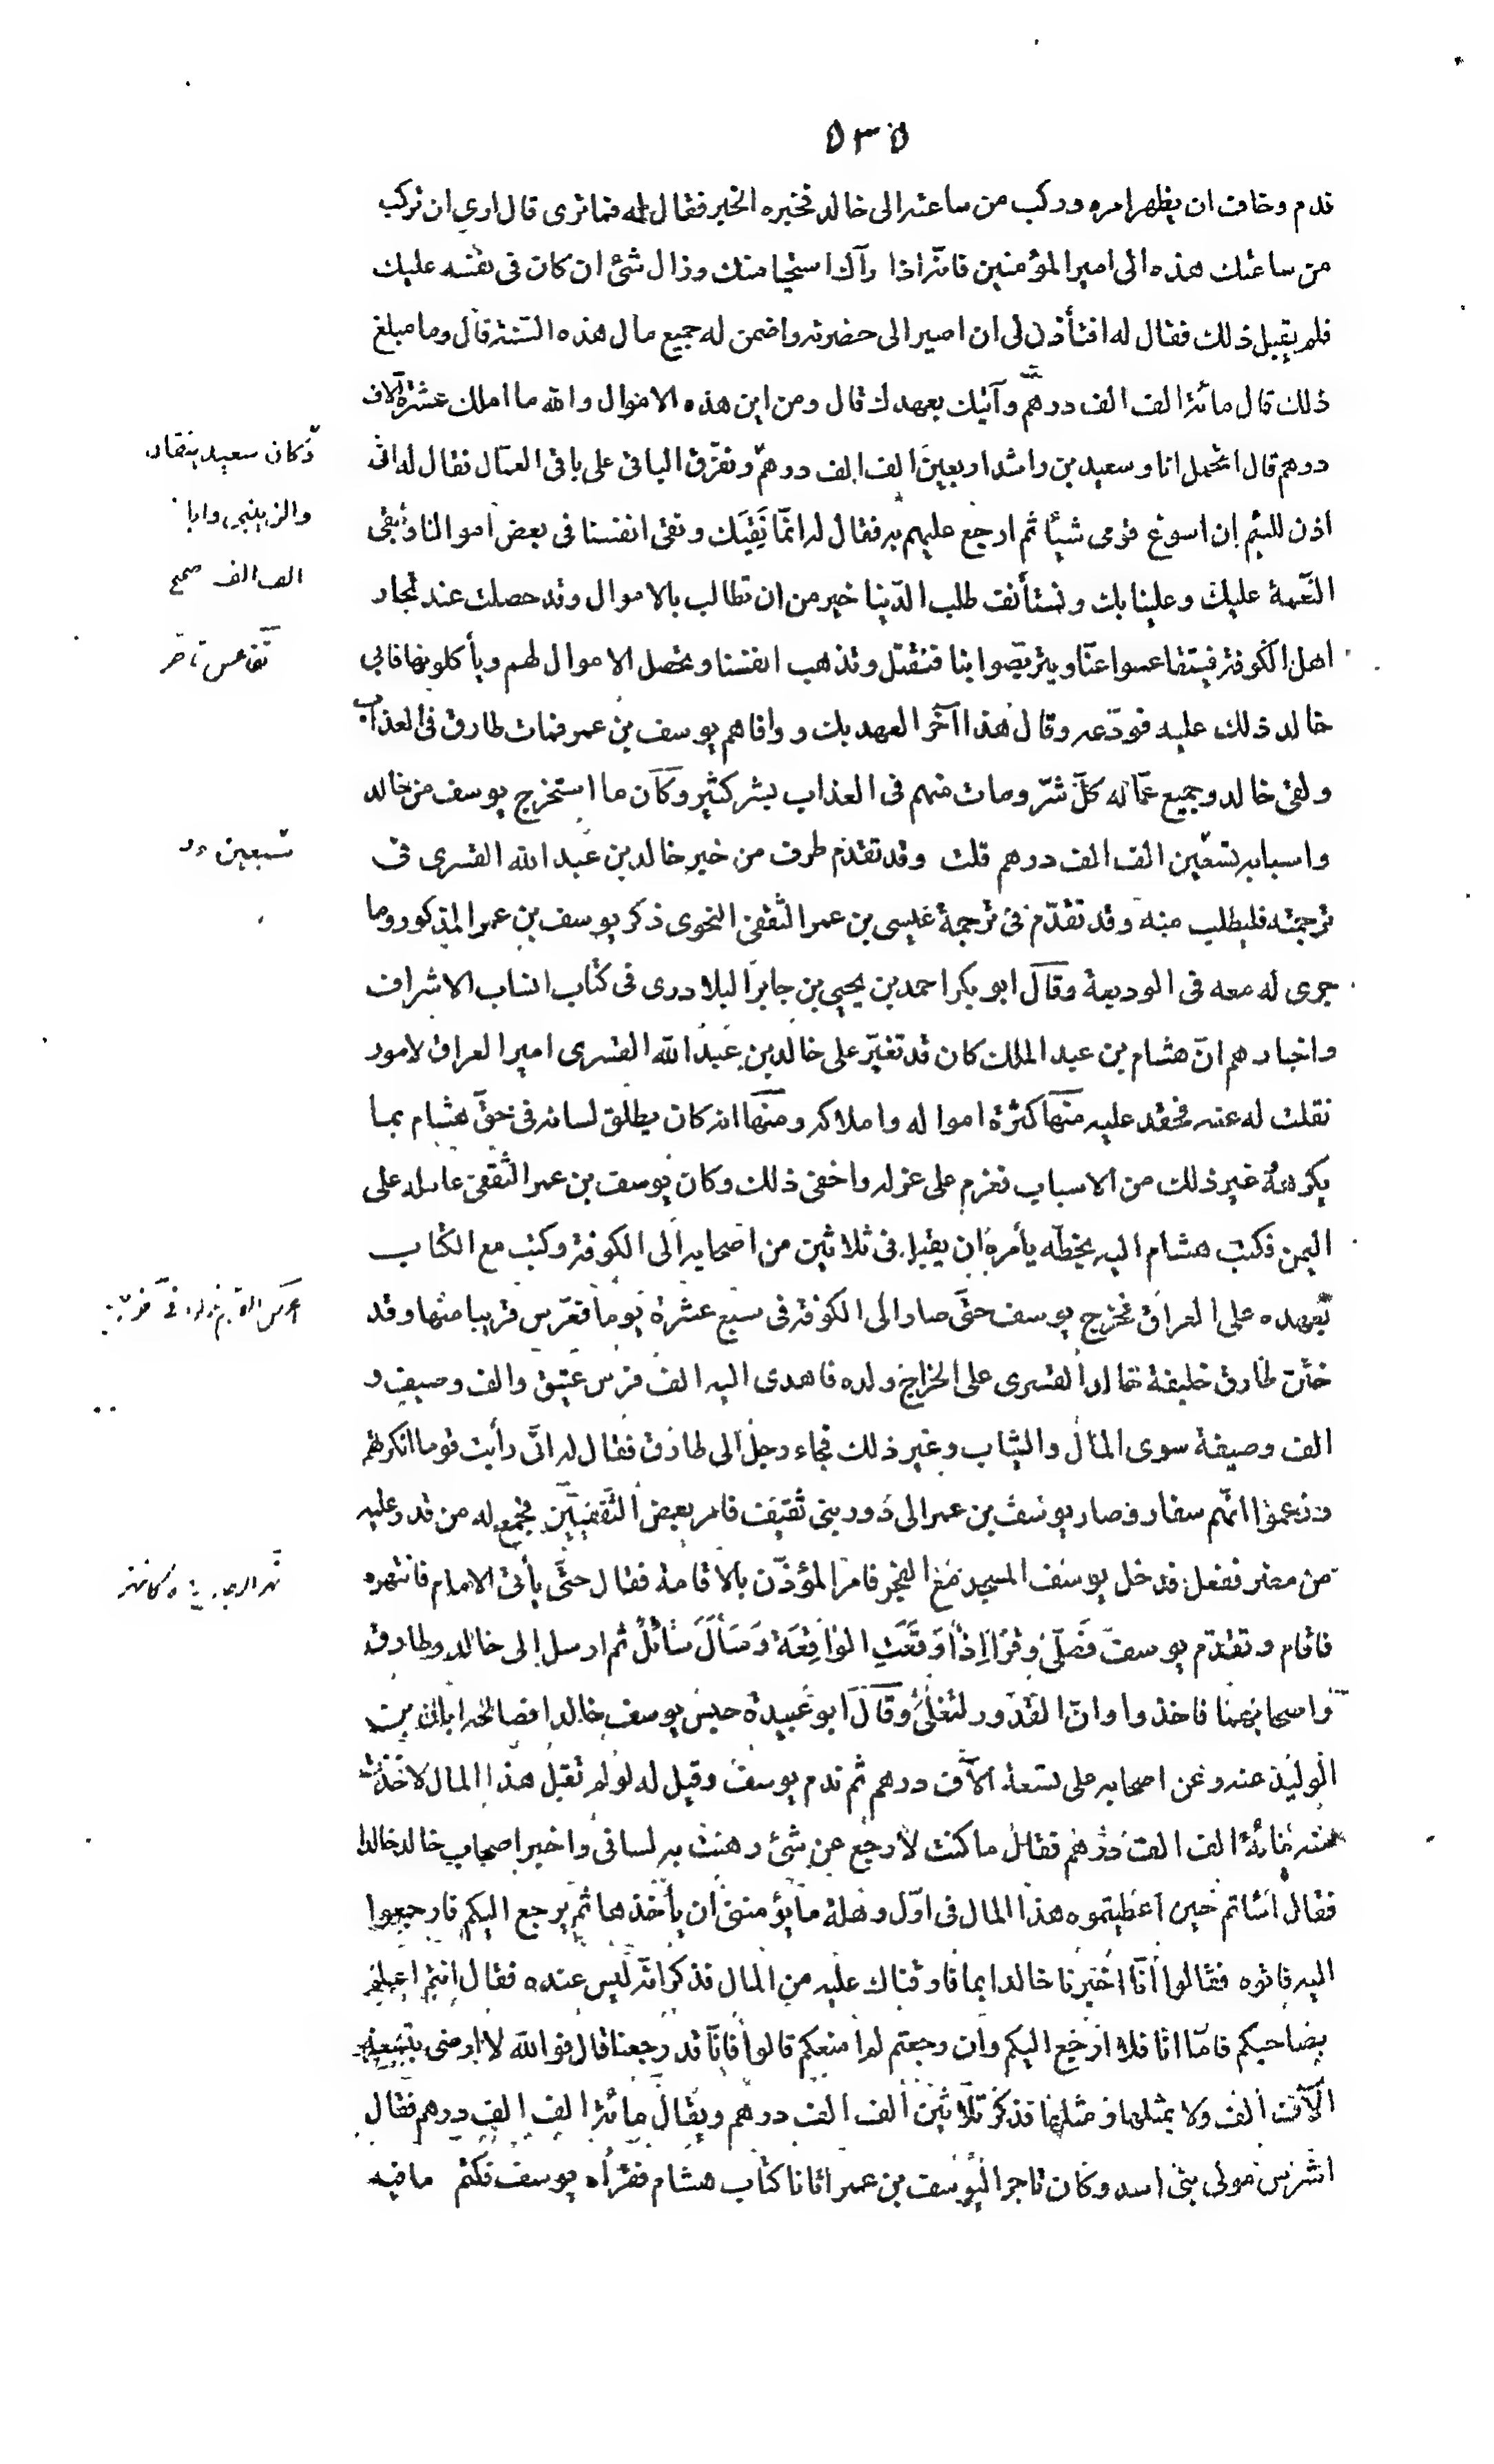 ٥٣٥
ندم وخاف ان يظهر امره وركب من ساعته الى خالد فخبره الخبر فقال له فما ترى قال ارى ان تركب
من ساعتك هذه الى امير المؤمنين فانه اذا رآك استحيا منك وزال شئ ان كان فى نفسه عليك
فلم يقبل ذلك فقال له افتأذن لى ان اصير الى حضرته واضمن له جميع مال هذه السنة قال وما مبلغ
ذلك قال مائة الف الف درهم وآتيك بعهدك قال ومن اين هذه الاموال والله ما املك عشرة آلاف
درهم قال اتحمل انا وسعيد بن راشد اربعين الف الف درهم ونفرّق الباقى على باقى العمّال فقال له انى
اذن للئيم ان اسوغ قومى شيئا ثم ارجع عليهم به فقال له انمّا نَقِيَك ونقى انفسنا فى بعض اموالنا وتبقى
النّعمة عليك وعلينا بك ونستأنف طلب الدّنيا خير من ان تطالب بالاموال وقد حصلت عند تجار
اهل الكوفة فيتقاعسوا عنّا ويتربّصوا بنا فنقتل وتذهب انفسنا وتحصل الاموال لهم ويأكلونها فابى
خالد ذلك عليه فودّعه وقال هذا آخر العهد بك ووافاهم يوسف بن عمر فمات طارق فى العذاب
ولقى خالد وجميع عمّاله كلّ شرّ ومات منهم فى العذاب بشر كثير وكان ما استخرج يوسف من خالد
واسبابه تسعين الف الف درهم قلت وقد تقدّم طرف من خبر خالد بن عبد الله القسرى فى
ترجمته فليطلب منه وقد تقدّم فى ترجمة عيسى بن عمر الثقفى النحوى ذكر يوسف بن عمر المذكور وما
جرى له معه فى الوديعة وقال ابو بكر احمد بن يحيى بن جابر البلادرى فى كتاب انساب الاشراف
واخبارهم انّ هشام بن عبد الملك كان قد تغيّر على خالد بن عبد الله القسرى امير العراق لامور
نقلت له عنه فحقد عليه منها كثرة امواله واملاكه ومنها انه كان يطلق لسانه فى حقّ هشام بما
يكرهه غير ذلك من الاسباب فعزم على عزله واخفى ذلك وكان يوسف بن عمر الثقفى عامله على
اليمن فكتب هشام اليه بخطّه يأمره ان يقبل فى ثلاثين من اصحابه الى الكوفة وكتب مع الكتاب
بعهده على العراق فخرج يوسف حتّى صار الى الكوفة فى سبع عشرة يوما فعرّس قريبا منها وقد
ختن طارق خليفة خالد القسرى على الخراج ولده فاهدى اليه الف فرس عتيق والف وصيف و
الف وصيفة سوى المال والثياب وغير ذلك فجاء رجل الى طارق فقال له انّى رأيت قوما انكرتهم
وزعموا انهم سفار وصار يوسف بن عمر الى دور بنى ثقيف فامر بعض الثّقفيّين فجمع له من قدر عليه
من مضر ففعل فدخل يوسف المسجد مع الفجر فامر المؤذّن بالاقامة فقال حتّى يأتى الامام فانتهره
فاقام وتقدّم يوسف فصلّى وقرأ اِذَا وَقَعَتِ الوَاقِعَة وَسَأَلَ سَائِلٌ ثم ارسل الى خالد وطارق
واصحابهما فاخذوا وانّ القدور لتغلى وقال ابو عبيدة حبس يوسف خالدا فصالحه ابان بن
الوليد عنه وعن اصحابه على تسعة آلاف درهم ثم ندم يوسف وقيل له لو لم تقبل هذا المال لاخذت
منه مائة الف الف درهم فقال ما كنت لارجع عن شئ رهنت به لسانى واخبر اصحاب خالد خالدا
فقال أسأتم حين اعطيتموه هذا المال فى اوّل وهلة ما يؤمننى ان يأخذها ثم يرجع اليكم فارجعوا
اليه فاتوه فقالوا انّا اخبرنا خالدا بما فارقناك عليه من المال فذكر انّه ليس عنده فقال انتم اعلم
بصاحبكم فامّا انا فلا ارجع اليكم وان رجعتم لم امنعكم قالوا فانّا قد رجعنا قال فوالله لا ارضى بتسعة
آلاف الف ولا بمثلها ومثلها فذكر ثلاثين الف الف درهم ويقال مائة الف الف درهم فقال
اشرس مولى بنى اسد وكان تاجرا ليوسف بن عمر اتانا كتاب هشام فقرأه يوسف فكتم ما فيه
وكان سعيد يتقلد
الف الف صحيح
تقاعس تأخر
سبعين